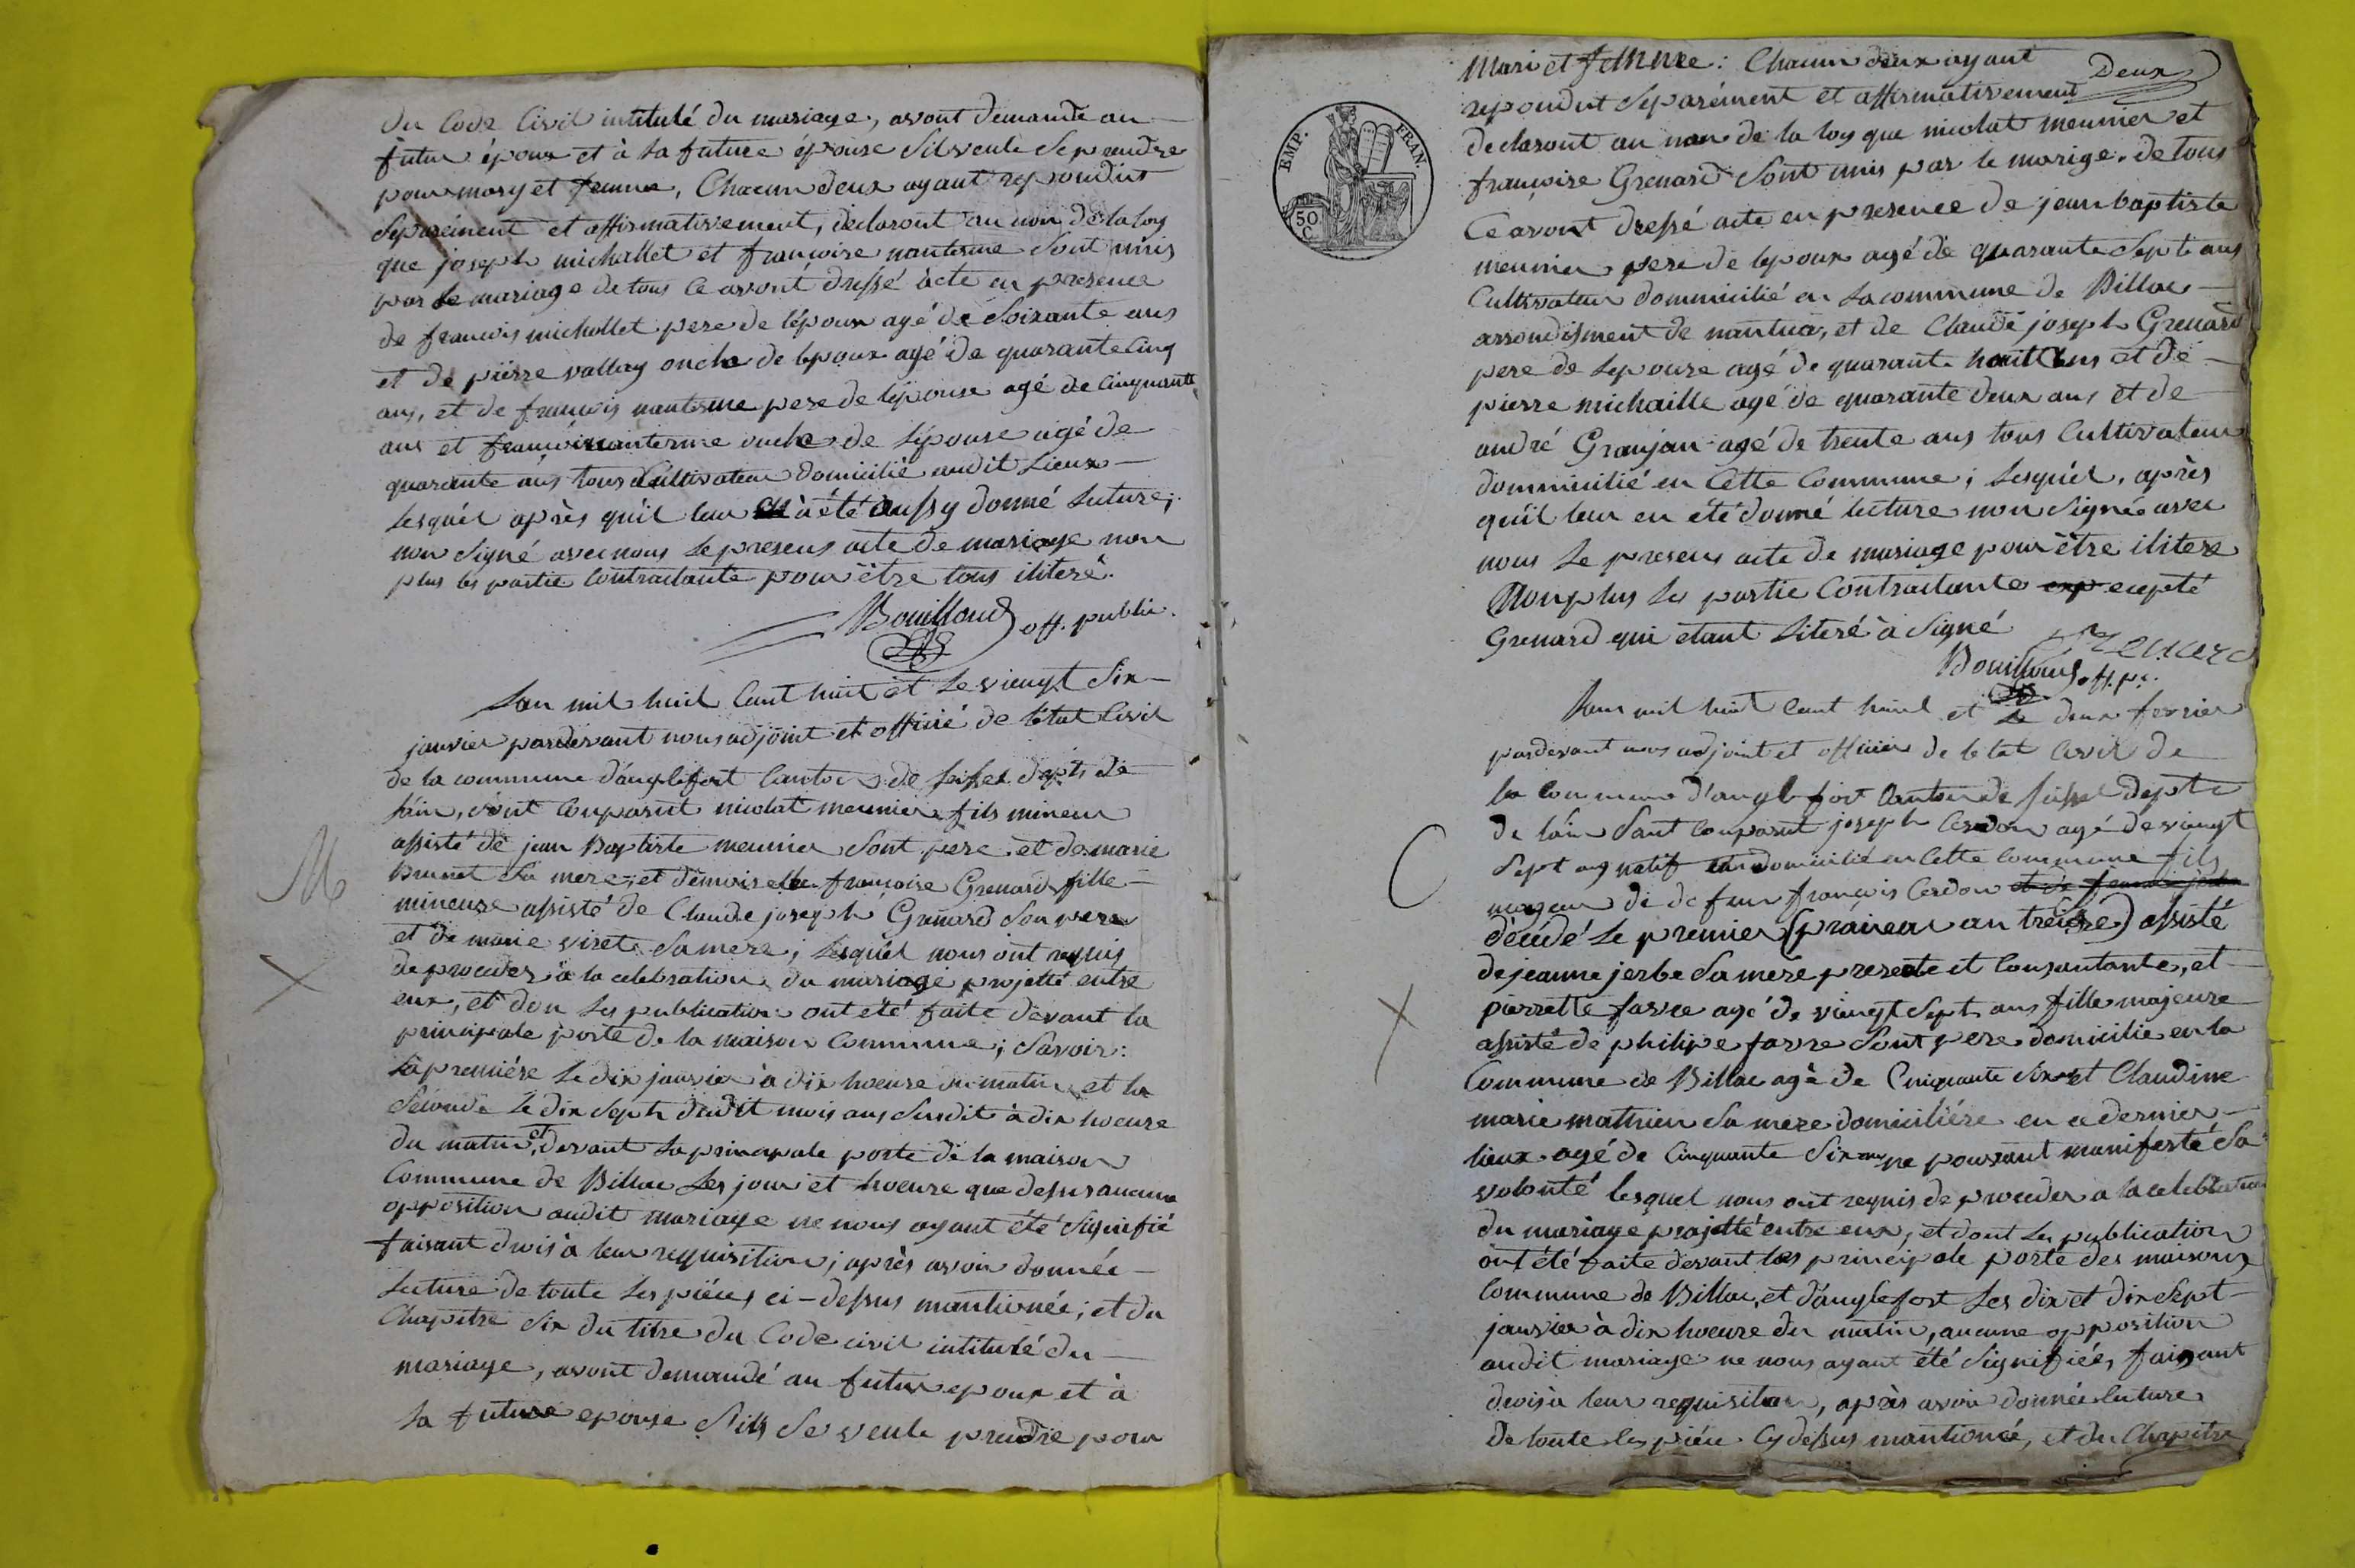 du Code Civil intitulé du mariage, avont demandé au
futur époux et à la future épouse Sil veule Se prendre
pour mary et femme, Chacun deux ayant repondus
Separément et affirmativement, declaront au nom de la loy
que joseph michallet et françoise nanterme Sont unis
par le mariage de tous Ce avont dressé acte en presence
de françois michallet pere de lépoux agé de Soixante ans
et de pierre vallery oncle de lepoux agé de quarante Cinq
ans, et de françois nanterme pere de lépouse agé de Cinquante
ans et françois nanterme oncle de lépouse agé de
quarante ans tous Cultivateur domicilié audit Lieux
Lesquél après quil leur à été aussy donné Lecture,
non Signé avec nous Le presens acte de mariage non
plus les partie Contractante pour être tous iliteré.
Bouilloud off. public.
Lan mil huit Cent huit et le vingt Six
janvier pardevant nous adjoint et officié de létat Civil
de la commune dánglefort Canton de Seissel dépt. de
láin, Sont Comparut nicolat meunier fils mineur
assisté de jean Baptiste meunier Sont pere et de marie
Brunet Sa mere, et demoiselle françoise Grenard fille
mineure assisté de Claude joseph Grenard Son pere
et de marie viret Sa mere; Lesquél nous ont requis
de proceder à la celebration du mariage projetté entre
eux, et don Les publication ont été faite devant la
principale porte de la maison Commune; Savoir:
La premiére Le dix janvier à dix hoeure du matin et la
Seconde Le dix Sept dudit mois aus Susdit à dix hoeure
du matin, et devant La principale porte de la maison
Commune de Billiac Les jour et hoeure que dessus aucune
opposition audit mariage ne nous ayant été Signifié
faisant drois à leur requisition; après avoir donnée
Lecture de toute Les piéces ci-dessus mantionée; et du
Chapitre Six du titre du Code civil intitulé du
mariage, avont demandé au futur epoux et à
la future epouse Sils Se veule prendre pour
M
X
Deux
EMP. FRAN.
50 C.
Mari et femme: Chacun deux ayant
repondut Separément et affirmativement
declaront au nom de la loy que nicolat meunier et
françoise Grenard Sont unis par le marige. de tous
Ce avont dressé acte en presence de jean baptiste
meunier pere de lepoux agé de quarante Sept ans
Cultivateur domicilié en La commune de Billac
arrondisment de nantua, et de Claude joseph Grenard
pere de Lepouse agé de quarante huit ans et de
pierre michaille agé de quarante deux ans et de
andré Granjan agé de trente ans tous Cultivateur
dommicilié en Cette Commune; Lesquél, après
quil leur en été donné lecture non Signée avec
nous Le presens acte de mariage pour être ilitere
Non plus Les partie Contractante exp ecepté
Grenard qui etant Literé à Signé
Grenard
Bouilloud off. p.
Lan mil huit Cent huit et Le deux fevrier
pardevant nous adjoint et officier de letat Civil de
la Commune d'anglefort Canton de Seissel dept.
de láin Sont Comparut joseph Cerdon agé de vingt
Sept ans natif et domicilié en Cette Commune fils
majeur de de feu françois Cerdon
décédé Le premier (prairial an treize) assisté
de jeanne jerbe Sa mere presente et Consantante, et
pierrette favre agé de vingt Sept ans fille majeure
assisté de philipe favre Sont pere domicilié en la
Commune de Billac agé de Cinquante Six et Claudine
marie mathieu Sa mere domiciliére en ce dernier
lieux agé de Cinquante Six ans ne pouvant manifesté Sa
volonté lesquel nous ont requis de proceder a la celebration
du mariage projetté entre eux, et dont Les publication
ont été faite devant les principale porte des maisons
Commune de Billac, et dánglefort Les dix et dix Sept
janvier à dix hoeure du matin, aucune opposition
audit mariage ne nous ayant été Signifiée, faisant
drois à leur requisition, après avoir donnée lecture
de toute les piéce Cy dessus mantionée, et du Chapitre
C
X